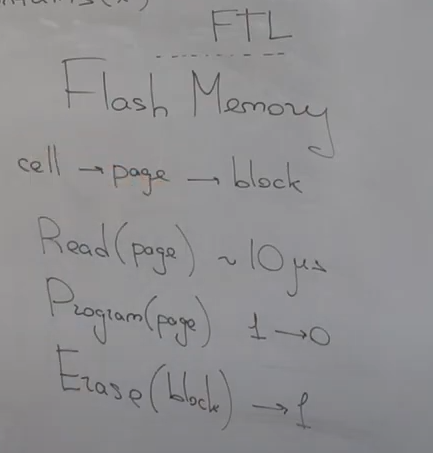 FTL
Flash Memory
cell → page → block
Read(page) ~10 μs
Program(page) 1→0
Erase(block) →1